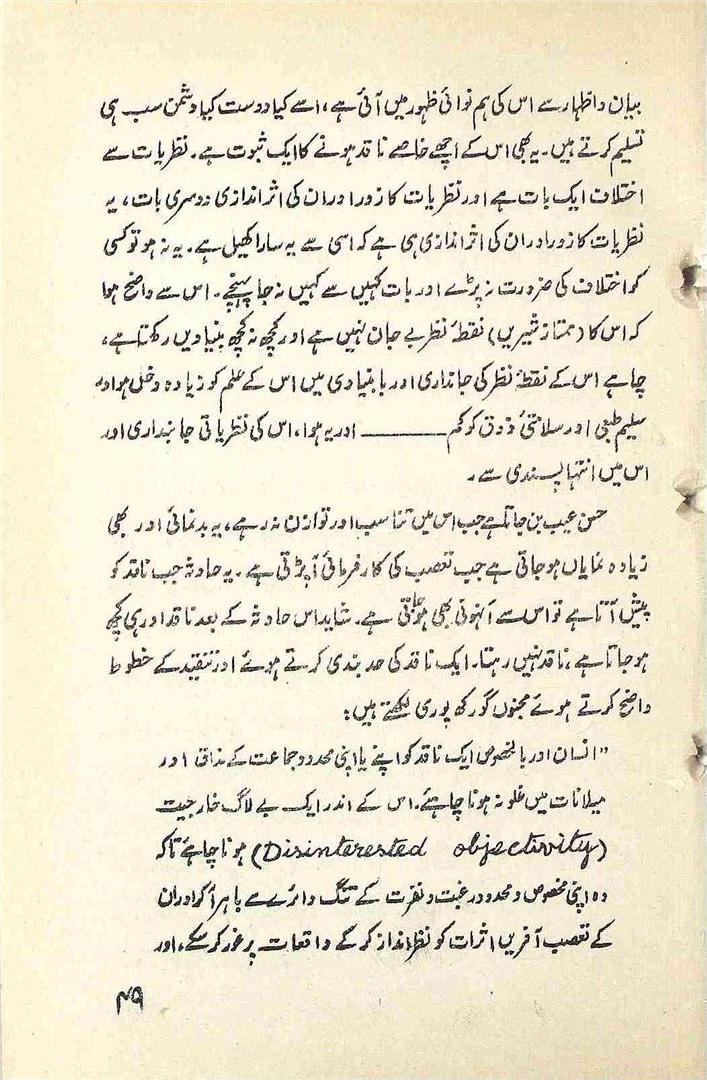 بیان و اظہار سے اس کی ہم نوائی ظہور میں آئی ہے، اسے کیا دوست کیا دشمن سب ہی
تسلیم کرتے ہیں۔ یہ بھی اس کے اچھے خاصے ناقد ہونے کا ایک ثبوت ہے۔ نظریات سے
اختلاف ایک بات ہے اور نظریات کا زور اور ان کی اثر اندازی دوسری بات، یہ
نظریات کا زور اور ان کی اثر اندازی ہی ہے کہ اسی سے یہ سارا کھیل ہے۔ یہ نہ ہو تو کسی
کو اختلاف کی ضرورت نہ پڑے اور بات کہیں سے کہیں نہ جا پہنچے۔ اس سے واضح ہوا
کہ اس کا (ممتاز شیریں) نقطۂ نظر بے جان نہیں ہے اور کچھ نہ کچھ بنیادیں رکھتا ہے،
چاہے اس کے نقطۂ نظر کی جانداری اور با بنیادی میں اس کے علم کو زیادہ دخل ہو اور
سلیم طبعی اور سلامتیٔ ذوق کو کم ــــــــــــ اور یہ ہوا، اس کی نظریاتی جانبداری اور
اس میں انتہا پسندی سے۔
حسن عیب بن جاتا ہے جب اس میں تناسب اور توازن نہ رہے، یہ بدنمائی اور بھی
زیادہ نمایاں ہو جاتی ہے جب تعصب کی کارفرمائی آ پڑتی ہے۔ یہ حادثہ جب ناقد کو
پیش آتا ہے تو اس سے انہونی بھی ہو جاتی ہے۔ شاید اس حادثہ کے بعد ناقد اور ہی کچھ
ہو جاتا ہے، ناقد نہیں رہتا۔ ایک ناقد کی حد بندی کرتے ہوئے اور تنقید کے خطوط
واضح کرتے ہوئے مجنوں گورکھ پوری لکھتے ہیں:
"انسان اور بالخصوص ایک ناقد کو اپنے یا اپنی محدود جماعت کے مذاق اور
میلانات میں غلو نہ ہونا چاہئے۔ اس کے اندر ایک بے لاگ خارجیت
(Disinterested objectivity) ہونا چاہئے تاکہ
وہ اپنی مخصوص و محدود رغبت و نفرت کے تنگ دائرے سے باہر آ کر اور ان
کے تعصب آفریں اثرات کو نظر انداز کر کے واقعات پر غور کر سکے، اور
۴۹